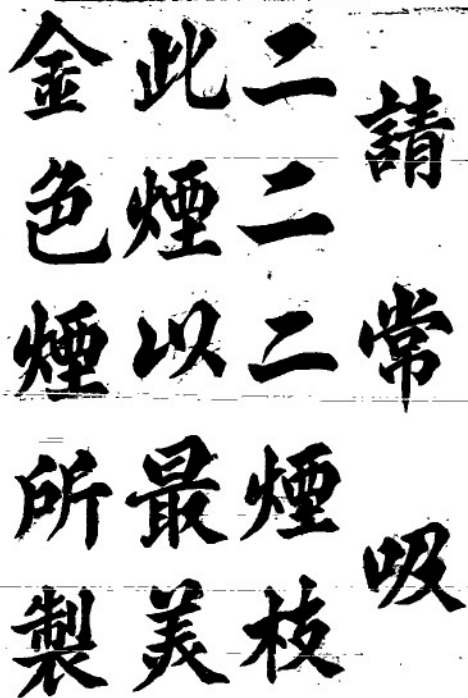 請常吸
二二二煙枝
此煙以最美
金色煙所製